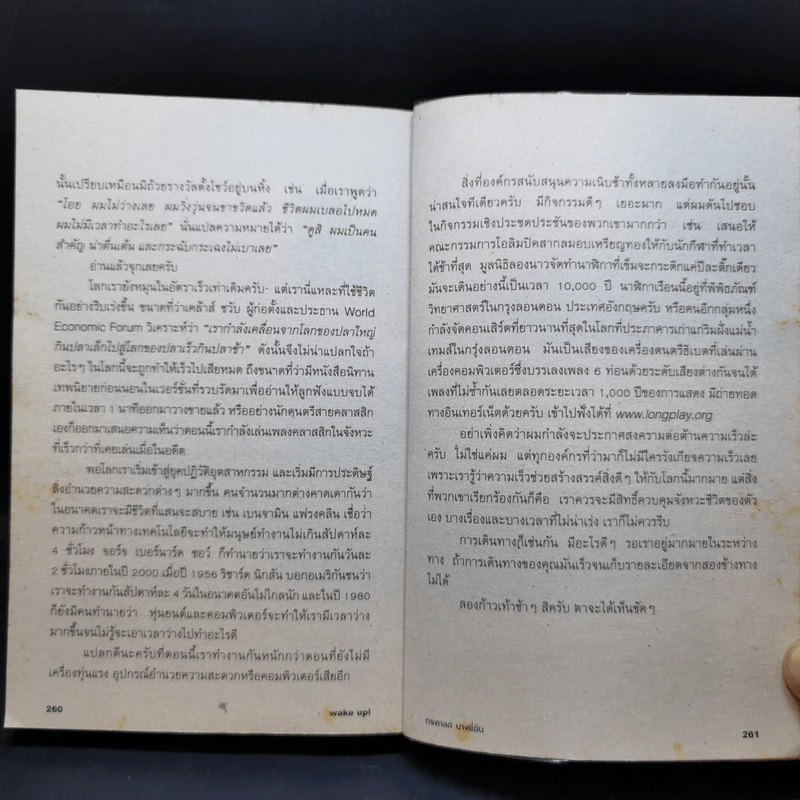 นั้นเปรียบเหมือนมีถ้วยรางวัลตั้งโชว์อยู่บนหิ้ง เช่น เมื่อเราพูดว่า
"โอย ผมไม่ว่างเลย ผมวิ่งวุ่นจนขาขวิดแล้ว ชีวิตผมเบลอไปหมด
ผมไม่มีเวลาทำอะไรเลย" นั่นแปลความหมายได้ว่า "ดูสิ ผมเป็นคน
สำคัญ น่าตื่นเต้น และกระฉับกระเฉงไม่เบาเลย"
อ่านแล้วจุกเลยครับ
โลกเรายังหมุนในอัตราเร็วเท่าเดิมครับ แต่เรานี่แหละที่ใช้ชีวิต
กันอย่างรีบเร่งขึ้น ขนาดที่ว่าเคล้าส์ ชวับ ผู้ก่อตั้งและประธาน World
Economic Forum วิเคราะห์ว่า "เรากำลังเคลื่อนจากโลกของปลาใหญ่
กินปลาเล็กไปสู่โลกของปลาเร็วกินปลาช้า" ดังนั้นจึงไม่น่าแปลกใจถ้า
อะไรๆ ในโลกนี้จะถูกทำให้เร็วไปเสียหมด ถึงขนาดที่ว่ามีหนังสือนิทาน
เทพนิยายก่อนนอนในเวอร์ชั่นที่รวบรัดมาเพื่ออ่านให้ลูกฟังแบบจบได้
ภายในเวลา 1 นาทีออกมาวางขายแล้ว หรืออย่างนักดนตรีสายคลาสสิก
เองก็ออกมาเสนอความเห็นว่าตอนนี้เรากำลังเล่นเพลงคลาสสิกในจังหวะ
ที่เร็วกว่าที่เคยเล่นเมื่อในอดีต
พอโลกเราเริ่มเข้าสู่ยุคปฏิวัติอุตสาหกรรม และเริ่มมีการประดิษฐ์
สิ่งอำนวยความสะดวกต่างๆ มากขึ้น คนจำนวนมากต่างคาดเดากันว่า
ในอนาคตเราจะมีชีวิตที่แสนจะสบาย เช่น เบนจามิน แฟรงคลิน เชื่อว่า
ความก้าวหน้าทางเทคโนโลยีจะทำให้มนุษย์ทำงานไม่เกินสัปดาห์ละ
4 ชั่วโมง จอร์จ เบอร์นาร์ด ชอว์ ก็ทำนายว่าเราจะทำงานกันวันละ
2 ชั่วโมงภายในปี 2000 เมื่อปี 1956 ริชาร์ด นิกสัน บอกอเมริกันชนว่า
เราจะทำงานกันสัปดาห์ละ 4 วันในอนาคตอันไม่ไกลนัก และในปี 1980
ก็ยังมีคนทำนายว่า หุ่นยนต์และคอมพิวเตอร์จะทำให้เรามีเวลาว่าง
มากขึ้นจนไม่รู้จะเอาเวลาว่างไปทำอะไรดี
แปลกดีนะครับที่ตอนนี้เราทำงานกันหนักกว่าตอนที่ยังไม่มี
เครื่องทุ่นแรง อุปกรณ์อำนวยความสะดวกหรือคอมพิวเตอร์เสียอีก
260 wake up!
สิ่งที่องค์กรสนับสนุนความเนิบช้าทั้งหลายลงมือทำกันอยู่นั้น
น่าสนใจทีเดียวครับ มีกิจกรรมดีๆ เยอะมาก แต่ผมดันไปชอบ
ในกิจกรรมเชิงประชดประชันของพวกเขามากกว่า เช่น เสนอให้
คณะกรรมการโอลิมปิคสากลมอบเหรียญทองให้กับนักกีฬาที่ทำเวลา
ได้ช้าที่สุด มูลนิธิลองนาวจัดทำนาฬิกาที่เข็มจะกระดิกแค่ปีละติ๊กเดียว
มันจะเดินอย่างนี้เป็นเวลา 10,000 ปี นาฬิกาเรือนนี้อยู่ที่พิพิธภัณฑ์
วิทยาศาสตร์ในกรุงลอนดอน ประเทศอังกฤษครับ หรือคนอีกกลุ่มหนึ่ง
กำลังจัดคอนเสิร์ตที่ยาวนานที่สุดในโลกที่ประภาคารเก่าแก่ริมฝั่งแม่น้ำ
เทมส์ในกรุงลอนดอน มันเป็นเสียงของเครื่องดนตรีธิเบตที่เล่นผ่าน
เครื่องคอมพิวเตอร์ซึ่งบรรเลงเพลง 6 ท่อนด้วยระดับเสียงต่างกันจนได้
เพลงที่ไม่ซ้ำกันเลยตลอดระยะเวลา 1,000 ปีของการแสดง มีถ่ายทอด
ทางอินเทอร์เน็ตด้วยครับ เข้าไปฟังได้ที่ www.longplay.org
อย่าเพิ่งคิดว่าผมกำลังจะประกาศสงครามต่อต้านความเร็วล่ะ
ครับ ไม่ใช่แค่ผม แต่ทุกองค์กรที่ว่ามาก็ไม่มีใครรังเกียจความเร็วเลย
เพราะเรารู้ว่าความเร็วช่วยสร้างสรรค์สิ่งดีๆ ให้กับโลกนี้มากมาย แต่สิ่ง
ที่พวกเขาเรียกร้องกันก็คือ เราควรจะมีสิทธิ์ควบคุมจังหวะชีวิตของตัว
เอง บางเรื่องและบางเวลาที่ไม่น่าเร่ง เราก็ไม่ควรรีบ
การเดินทางก็เช่นกัน มีอะไรดีๆ รอเราอยู่มากมายในระหว่าง
ทาง ถ้าการเดินทางของคุณมันเร็วจนเก็บรายละเอียดจากสองข้างทาง
ไม่ได้
ลองก้าวเท้าช้าๆ สิครับ ตาจะได้เห็นชัดๆ
ทรงกลด บางยี่ขัน 261